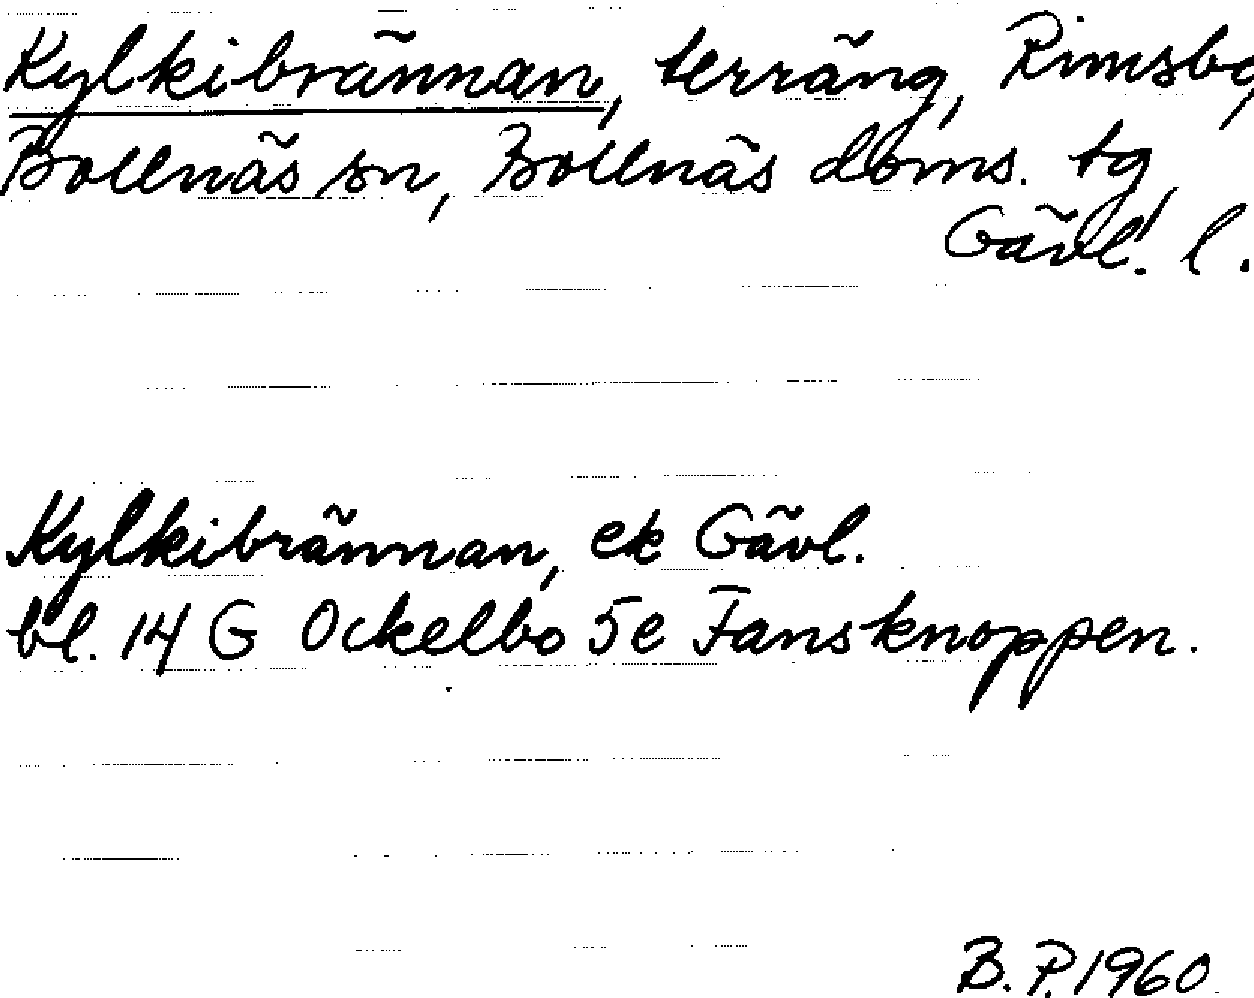 Kylkibrännan, terräng, Rimsbo,
Bollnäs sn, Bollnäs doms. tg,
Gävl. l.
Kylkibrännan, ek Gävl.
bl. 14 G Ockelbo 5e Fansknoppen.
B. P. 1960